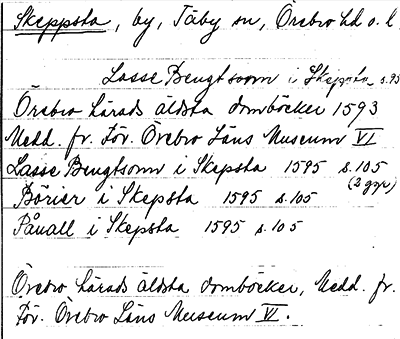 Skeppsta, by, Täby sn, Örebro hd o. l.
Lasse Bengtsson i Skeppsta s. 93
Örebro härads äldsta domböcker 1593
Medd. fr. För. Örebro Läns Museum VI
Lasse Bengtsonn i Skepsta 1595 s. 105
(2 ggr)
Börier i Skepsta 1595 s. 105
Påuall i Skepsta 1595 s. 105
Örebro härads äldsta domböcker, Medd. fr.
För. Örebro Läns Museum VI.